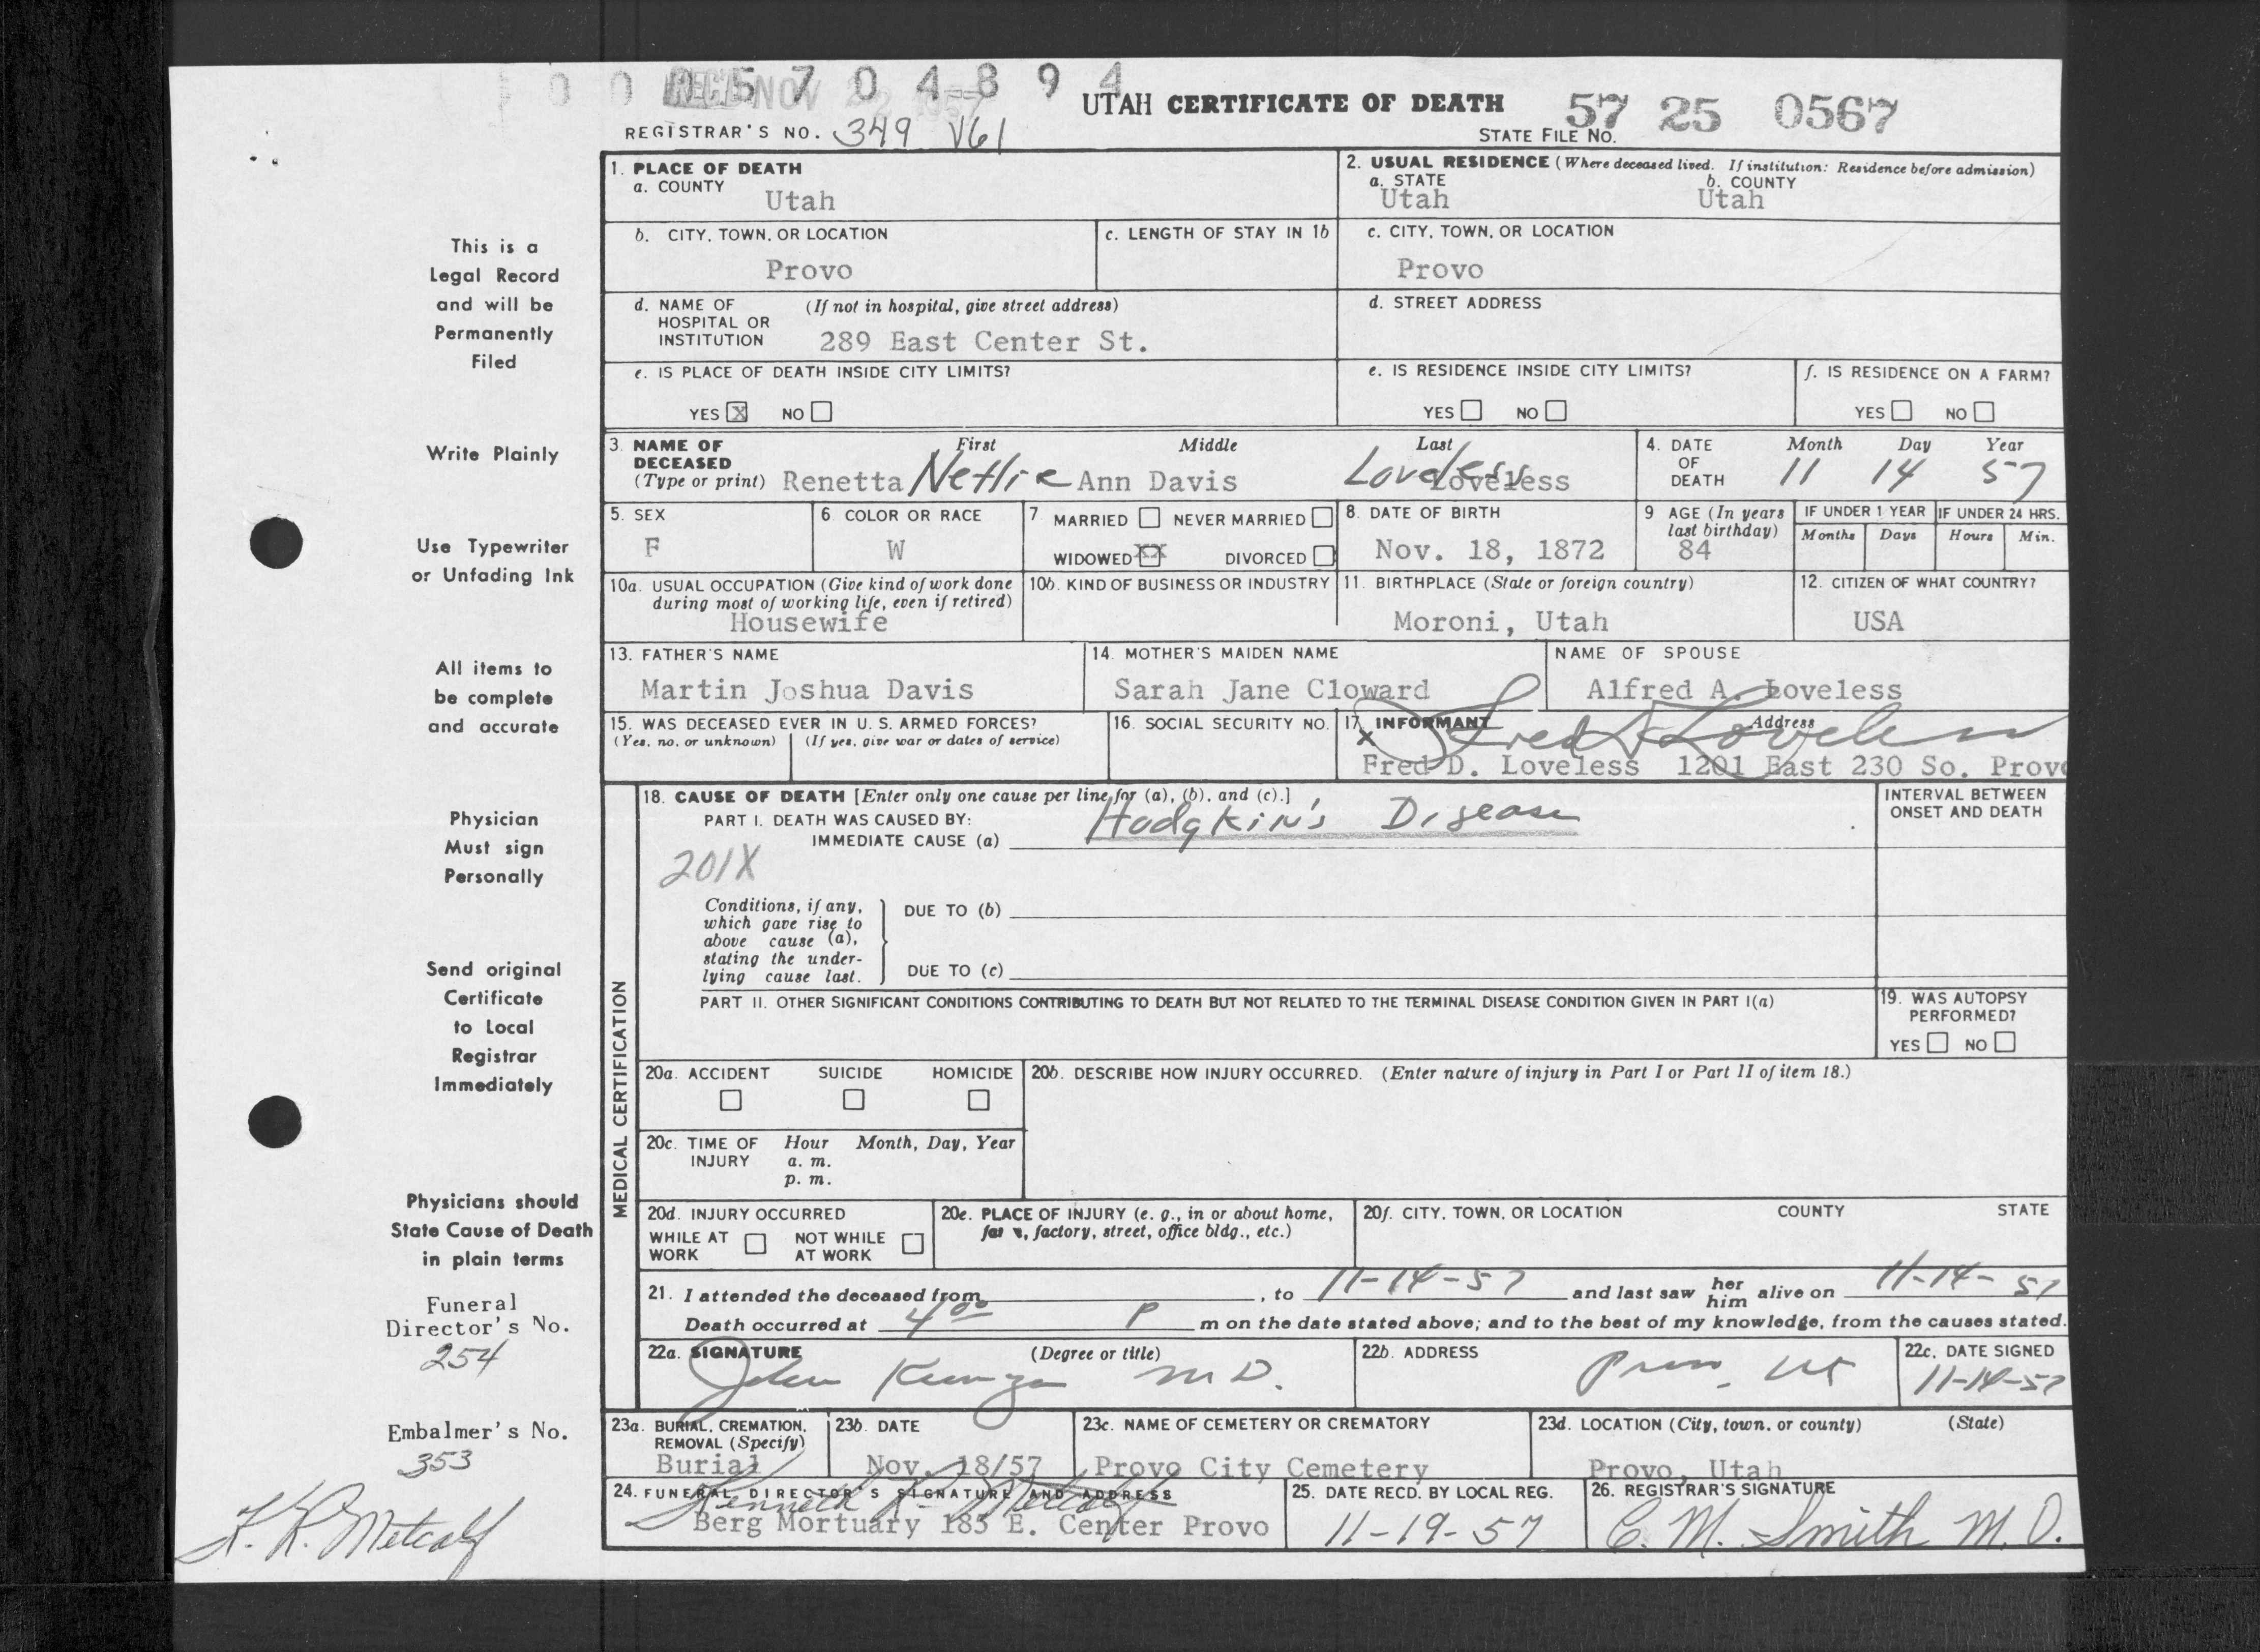 0 0 0 5 7 0 4 8 9 4
REC'D NOV 22 1957
UTAH CERTIFICATE OF DEATH
57 25 0567
REGISTRAR'S NO. 349 V61
STATE FILE NO.
1. PLACE OF DEATH
a. COUNTY
Utah
2. USUAL RESIDENCE (Where deceased lived. If institution: Residence before admission)
a. STATE b. COUNTY
Utah Utah
b. CITY, TOWN, OR LOCATION
Provo
c. LENGTH OF STAY IN 1b
c. CITY, TOWN, OR LOCATION
Provo
d. NAME OF (If not in hospital, give street address)
HOSPITAL OR
INSTITUTION 289 East Center St.
d. STREET ADDRESS
e. IS PLACE OF DEATH INSIDE CITY LIMITS?
YES X NO
e. IS RESIDENCE INSIDE CITY LIMITS?
YES NO
f. IS RESIDENCE ON A FARM?
YES NO
3. NAME OF First Middle Last
DECEASED
(Type or print) Renetta Nettie Ann Davis Loveless Loveless
4. DATE Month Day Year
OF
DEATH 11 14 57
5. SEX
F
6. COLOR OR RACE
W
7 MARRIED NEVER MARRIED
WIDOWED XX DIVORCED
8. DATE OF BIRTH
Nov. 18, 1872
9 AGE (In years
last birthday)
84
IF UNDER 1 YEAR IF UNDER 24 HRS.
Months Days Hours Min.
10a. USUAL OCCUPATION (Give kind of work done
during most of working life, even if retired)
Housewife
10b. KIND OF BUSINESS OR INDUSTRY
11. BIRTHPLACE (State or foreign country)
Moroni, Utah
12. CITIZEN OF WHAT COUNTRY?
USA
13. FATHER'S NAME
Martin Joshua Davis
14. MOTHER'S MAIDEN NAME
Sarah Jane Cloward
NAME OF SPOUSE
Alfred A. Loveless
15. WAS DECEASED EVER IN U. S. ARMED FORCES?
(Yes, no, or unknown) (If yes, give war or dates of service)
16. SOCIAL SECURITY NO.
17. INFORMANT Address
X Fred D Loveless
Fred D. Loveless 1201 East 230 So. Provo
MEDICAL CERTIFICATION
18. CAUSE OF DEATH [Enter only one cause per line for (a), (b), and (c).]
PART I. DEATH WAS CAUSED BY:
IMMEDIATE CAUSE (a) Hodgkin's Disease
201X
Conditions, if any,
which gave rise to
above cause (a),
stating the under-
lying cause last.
DUE TO (b)
DUE TO (c)
INTERVAL BETWEEN
ONSET AND DEATH
PART II. OTHER SIGNIFICANT CONDITIONS CONTRIBUTING TO DEATH BUT NOT RELATED TO THE TERMINAL DISEASE CONDITION GIVEN IN PART I(a)
19. WAS AUTOPSY
PERFORMED?
YES NO
20a. ACCIDENT SUICIDE HOMICIDE
20b. DESCRIBE HOW INJURY OCCURRED. (Enter nature of injury in Part I or Part II of item 18.)
20c. TIME OF Hour Month, Day, Year
INJURY a. m.
p. m.
20d. INJURY OCCURRED
WHILE AT NOT WHILE
WORK AT WORK
20e. PLACE OF INJURY (e. g., in or about home,
farm, factory, street, office bldg., etc.)
20f. CITY, TOWN, OR LOCATION COUNTY STATE
21. I attended the deceased from , to 11-14-57 and last saw her him alive on 11-14-57
Death occurred at 4 00 P m on the date stated above; and to the best of my knowledge, from the causes stated.
22a. SIGNATURE (Degree or title)
John M D.
22b. ADDRESS
Provo, Ut
22c. DATE SIGNED
11-14-57
23a. BURIAL, CREMATION,
REMOVAL (Specify)
Burial
23b. DATE
Nov. 18/57
23c. NAME OF CEMETERY OR CREMATORY
Provo City Cemetery
23d. LOCATION (City, town, or county) (State)
Provo, Utah
24. FUNERAL DIRECTOR'S SIGNATURE AND ADDRESS
Kenneth R. Metcalf
Berg Mortuary 185 E. Center Provo
25. DATE RECD. BY LOCAL REG.
11-19-57
26. REGISTRAR'S SIGNATURE
C. M. Smith M. D.
This is a
Legal Record
and will be
Permanently
Filed
Write Plainly
Use Typewriter
or Unfading Ink
All items to
be complete
and accurate
Physician
Must sign
Personally
Send original
Certificate
to Local
Registrar
Immediately
Physicians should
State Cause of Death
in plain terms
Funeral
Director's No.
254
Embalmer's No.
353
K. R. Metcalf